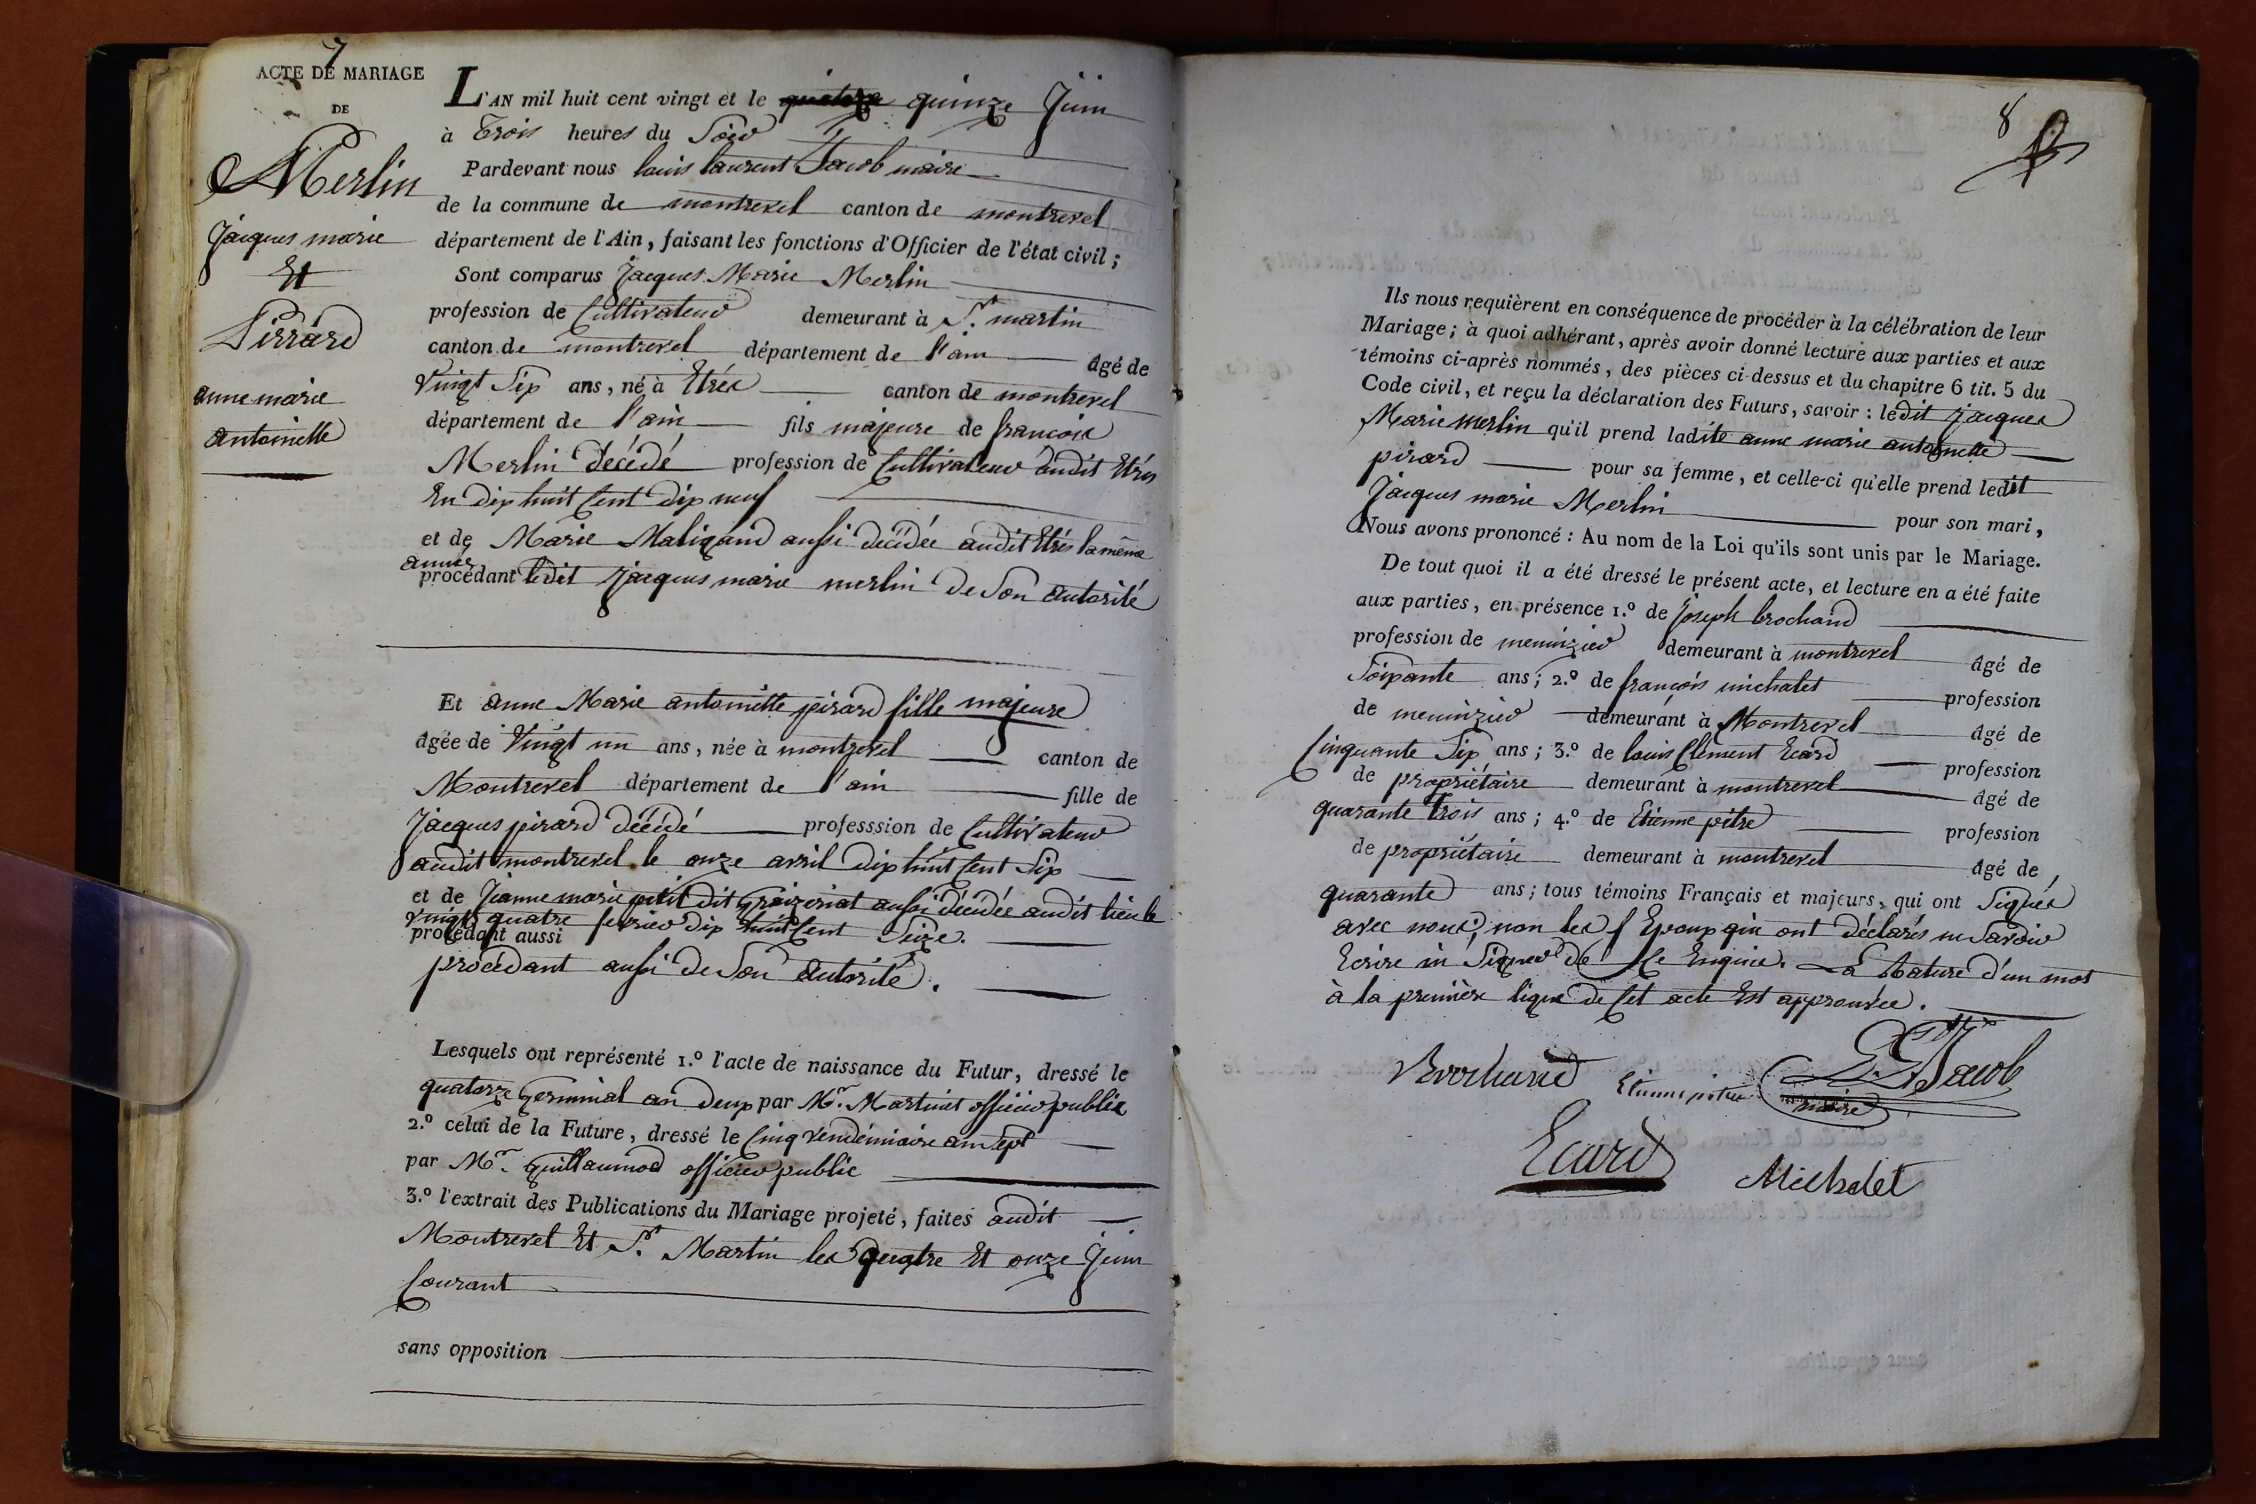 7
ACTE DE MARIAGE
DE
Merlin
Jacques marie
Et
Pirrard
anne marie
antoinette
L'AN mil huit cent vingt et le quatorze quinze Juin
à Trois heures du Soir
Pardevant nous louis laurent Jacob maire
de la commune de montrevel canton de montrevel
département de l'Ain, faisant les fonctions d'Officier de l'état civil;
Sont comparus Jacques Marie Merlin
profession de Cultivateur demeurant à St. martin
canton de montrevel département de l'ain âgé de
Vingt Six ans, né à Etrés canton de montrevel
département de l'ain fils majeure de francois
Merlin décédé profession de Cultivateur audit Etrés
En dix huit Cent dix neuf
et de Marie Maligand aussi décédée audit Etrés la même
année
procédant ledit jacques marie merlin de Son autorité
Et anne Marie antoinette pirard fille majeure
âgée de Vingt un ans, née à montrevel canton de
Montrevel département de l'ain fille de
Jacques pirard décédé professsion de Cultivateur
audit montrevel le onze avril dix huit Cent Six
et de Jeanne marie petit dit aussi décédée audit lieu le
vingt quatre fevrier dix huit Cent Seize.
procédant aussi
procédant aussi de Son autorité.
Lesquels ont représenté 1.º l'acte de naissance du Futur, dressé le
quatorze germinal an deux par Mr. Martinet officier public
2.º celui de la Future, dressé le Cinq vendémiaire an Sept
par Mr. guillaumod officier public
3.º l'extrait des Publications du Mariage projeté, faites audit
Montrevel Et St. Martin les quatre Et onze Juin
Courant
sans opposition
8
Ils nous requièrent en conséquence de procéder à la célébration de leur
Mariage; à quoi adhérant, après avoir donné lecture aux parties et aux
témoins ci-après nommés, des pièces ci-dessus et du chapitre 6 tit. 5 du
Code civil, et reçu la déclaration des Futurs, savoir: ledit jacques
Marie Merlin qu'il prend ladite anne marie antoinette
pirard pour sa femme, et celle-ci qu'elle prend ledit
Jacques marie Merlin pour son mari,
Nous avons prononcé: Au nom de la Loi qu'ils sont unis par le Mariage.
De tout quoi il a été dressé le présent acte, et lecture en a été faite
aux parties, en présence 1.º de Joseph brochand
profession de menuizier demeurant à montrevel âgé de
Soixante ans; 2.º de francois michalet profession
de menuizier demeurant à Montrevel âgé de
Cinquante Six ans; 3.º de louis Clement Ecard profession
de propriétaire demeurant à montrevel âgé de
quarante trois ans; 4.º de Etienne pitre profession
de propriétaire demeurant à montrevel âgé de
quarante ans; tous témoins Français et majeurs, qui ont Signés
avec nous, non les Epoux qui ont déclarés ne Savoir
Ecrire ni Signer de Ce Enquis. La Rature d'un mot
à la première ligne de Cet acte Est approuvée.
Brochand Etienne pitre L. L. Jacob
maire
Ecard Michalet